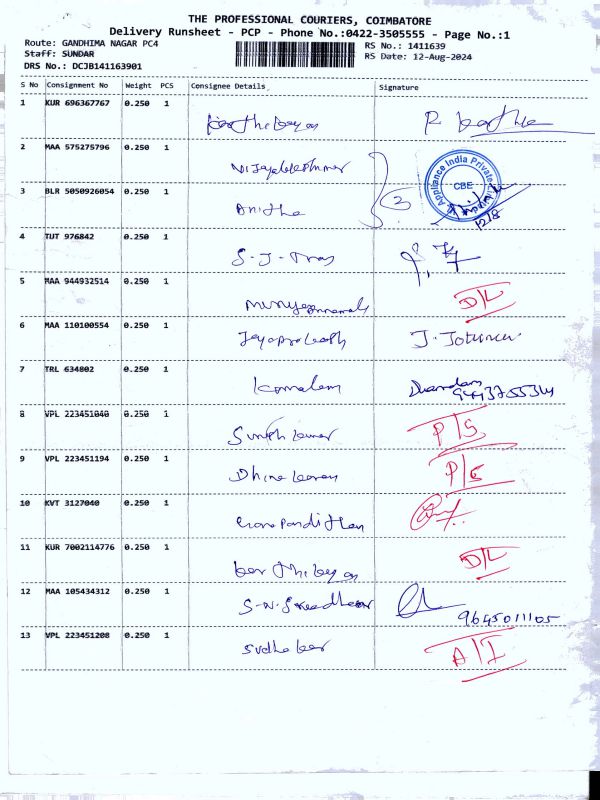 THE PROFESSIONAL COURIERS, COIMBATORE
Delivery Runsheet - PCP - Phone No.:0422-3505555 - Page No.:1
Route: GANDHIMA NAGAR PC4
RS No.: 1411639
Staff: SUNDAR
RS Date: 12-Aug-2024
DRS No.: DCJB141163901
S No Consignment No Weight PCS Consignee Details Signature
1 KUR 696367767 0.250 1 Karthikeyan
2 MAA 575275796 0.250 1 Vijayalakshmi
3 BLR 5050926054 0.250 1 Anitha
Appliance India Private
CBE
12/8
4 TUT 976842 0.250 1 S-J-
5 MAA 944932514 0.250 1 D/L
6 MAA 110100554 0.250 1 Jayaprakash
7 TRL 634802 0.250 1 Kamalam
8 VPL 223451040 0.250 1 P/S
9 VPL 223451194 0.250 1
10 KVT 3127040 0.250 1
11 KUR 7002114776 0.250 1 Karthikeyan D/L
12 MAA 105434312 0.250 1 S-N-Sreedharan
9645011105
13 VPL 223451208 0.250 1 Sudhakar A/I